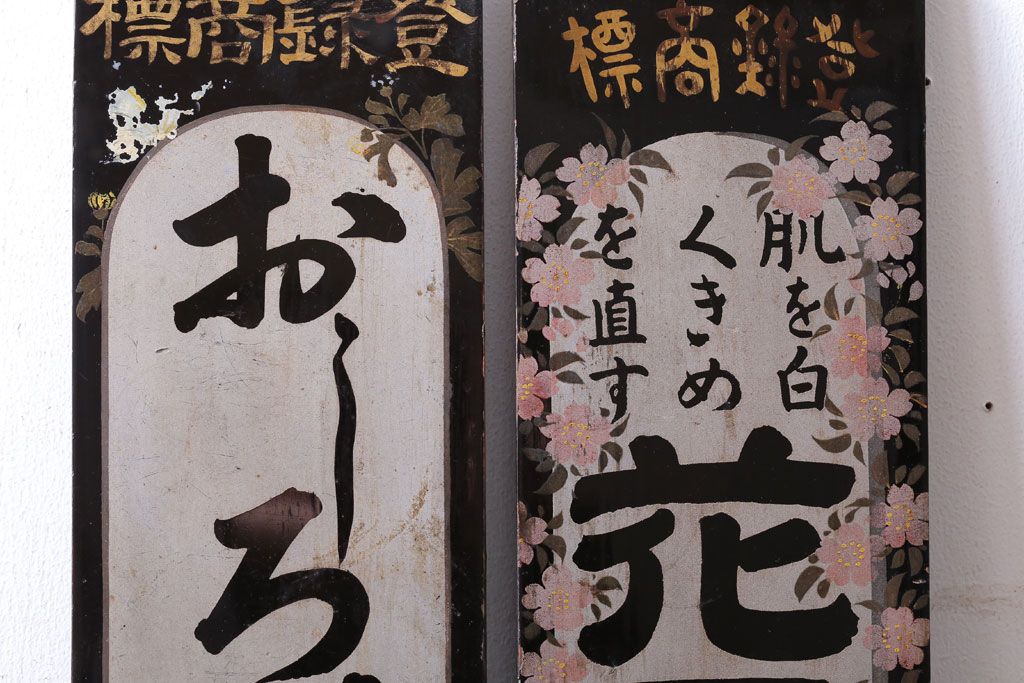 登録商標
おしろ
登録商標
肌を白
くきめ
を直す
花